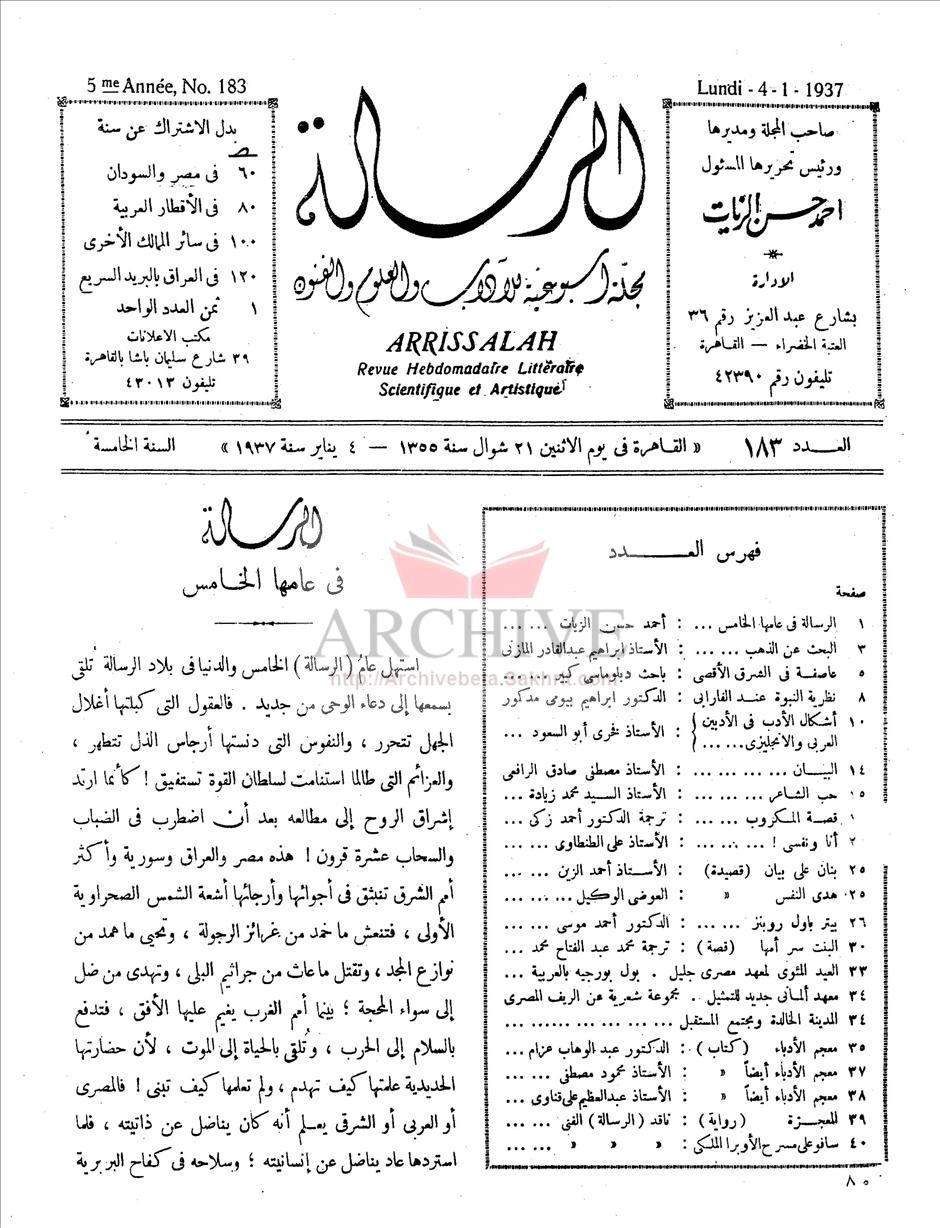 5me Année, No. 183
Lundi - 4 - 1 - 1937
صاحب المجلة ومديرها
ورئيس تحريرها المسئول
احمد حسن الزيات
الإدارة
بشارع عبد العزيز رقم ٣٦
العتبة الخضراء — القاهرة
تليفون رقم ٤٢٣٩٠
الرسالة
مجلة أسبوعية للآداب والعلوم والفنون
ARRISSALAH
Revue Hebdomadaire Littéraire
Scientifique et Artistique
بدل الاشتراك عن سنة
٦٠ فى مصر والسودان
٨٠ فى الأقطار العربية
١٠٠ فى سائر الممالك الأخرى
١٢٠ فى العراق بالبريد السريع
١ ثمن العدد الواحد
مكتب الاعلانات
٣٩ شارع سليمان باشا بالقاهرة
تليفون ٤٣٠١٣
العـــدد ١٨٣ « القاهرة فى يوم الاثنين ٢١ شوال سنة ١٣٥٥ — ٤ يناير سنة ١٩٣٧ » السنة الخامسة
فهرس العـــدد
صفحة
١ الرسالة فى عامها الخامس ... : أحمد حسن الزيات ... ...
٣ البحث عن الذهب ... ... : الأستاذ ابراهيم عبد القادر المازنى
٥ عاصفة فى الشرق الأقصى : باحث دبلوماسى كبير ... ...
٨ نظرية النبوة عنـد الفارابى : الدكتور ابراهيم بيومى مدكور
١٠ أشكال الأدب فى الأدبين العربى والانجليزى... ... } : الأستاذ فخرى أبو السعود ...
١٤ البيـــان ... ... ... ... : الأستاذ مصطفى صادق الرافعى
١٥ حب الشاعر ... ... ... : الأستاذ السيـد محمد زيادة ...
١ قصـة المـكروب ... ... : ترجمة الدكتور أحمد زكى ...
٢ أنا ونفسى ! ... ... ... : الأستاذ على الطنطاوى ... ...
٢٥ بنان على بيان (قصيدة) : الأســتاذ أحمد الزين ... ...
٢٥ هدى النفس » : العوضى الوكيل ... ... ...
٢٦ بيتر باول روبنز ... ... : الدكتور أحمد موسى ... ...
٣٠ البنت سر أمها (قصة) : ترجمة محمد عبد الفتاح محمد ...
٣٣ العيد المئوى لمعهد مصرى جليل . بول بورجيه بالعربية ...
٣٤ معهد ألمانى جديد للتمثيل . مجموعة شعرية عن الريف المصرى
٣٤ المدينة الخالدة ومجتمع المستقبل ... ... ... ... ... ...
٣٥ معجم الأدباء (كتاب) : الدكتور عبد الوهاب عزام ...
٣٧ معجم الأدباء أيضاً » : الأستاذ محمود مصطفى ... ...
٣٨ معجم الأدباء أيضاً » : الأستاذ عبد العظيم على قناوى ...
٣٩ المعجـزة (رواية) : ناقد (الرسالة) الفنى ... ...
٤٠ سافو على مسرح الأوبرا الملكى : » » » ... ...
الرسالة
فى عامها الخامس
استهل عامُ (الرسالة) الخامس والدنيا فى بلاد الرسالة تلقى
بسمعها إلى دعاء الوحى من جديد . فالعقول التى كبلتها أغلال
الجهل تتحرر ، والنفوس التى دنستها أرجاس الذل تتطهر ،
والعزائم التى طالما استنامت لسلطان القوة تستفيق ! كأنما ارتد
إشراق الروح إلى مطالعه بعد أن اضطرب فى الضباب
والسحاب عشرة قرون ! هذه مصر والعراق وسورية وأكثر
أمم الشرق تنبثق فى أجوائها وأرجائها أشعة الشمس الصحراوية
الأولى ، فتنعش ما خمد من غرائز الرجولة ، وتحيى ما همد من
نوازع المجد ، وتقتل ما عاث من جراثيم البلى ، وتهدى من ضل
إلى سواء المحجة ؛ بينما أمم الغرب يغيم عليها الأفق ، فتدفع
بالسلام إلى الحرب ، وتُلقى بالحياة إلى الموت ، لأن حضارتها
الحديدية علمتها كيف تهدم ، ولم تعلمها كيف تبنى ! فالمصرى
أو العربى أو الشرقى يعـلم أنه كان يناضل عن ذاتيته ، فلما
استردها عاد يناضل عن إنسانيته ؛ وسلاحه فى كفاح البربرية
٨٠
ARCHIVE
http://Archivebeta.Sakhrit.com